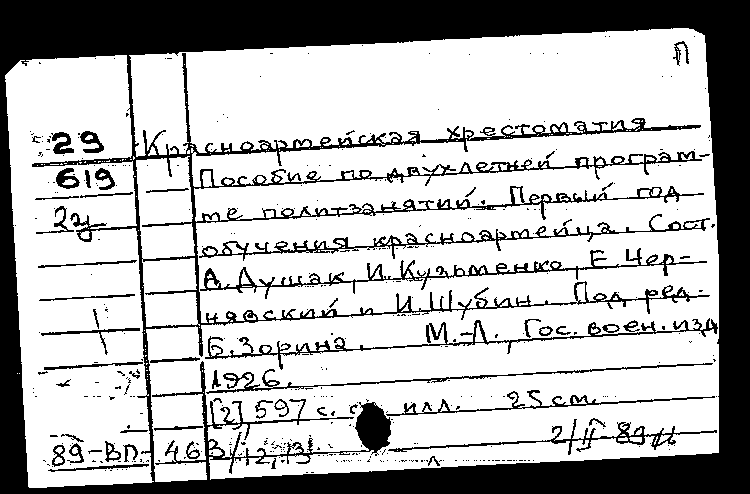 П
29 Красноармейская хрестоматия
619 Пособие по двухлетней програм-
2у ме политзанятий. Первый год
обучения красноармейца. Сост.
А. Душак, И. Кузьменко, Е. Чер-
нявский и И. Шубин. Под ред.
Б. Зорина. М.-Л., Гос. воен. изд
1926.
[2], 597 с. с илл. 25 см.
89-ВП-463/12,13! 2/II-89